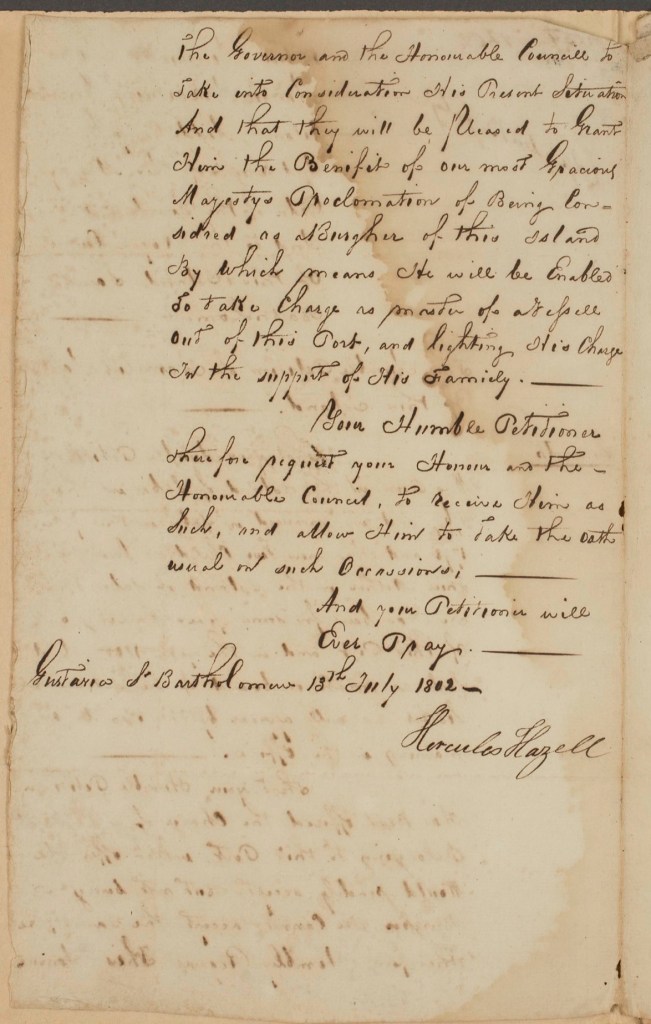 the Governor and the Honourable Councill to
Take into Consideration His Present Situation
And that they will be Pleased to Grant
Him the Benifit of our most Gracious
Majestys Proclomation of Being Con=
sidred as a Burgher of this Island
By Which means He will be Enabled
To Take Charge as master of a Vessell
Out of this Port, and lighting His Charge
In the support of His Family.
Your Humble Petitioner
therefore request your Honour and the
Honourable Council, to receive Him as
Such, and allow Him to Take the Oath
usual on such Occassions,
And your Petitioner will
Ever Pray.
Gustavia St Bartholomew 13th July 1802
Hercules Hazell